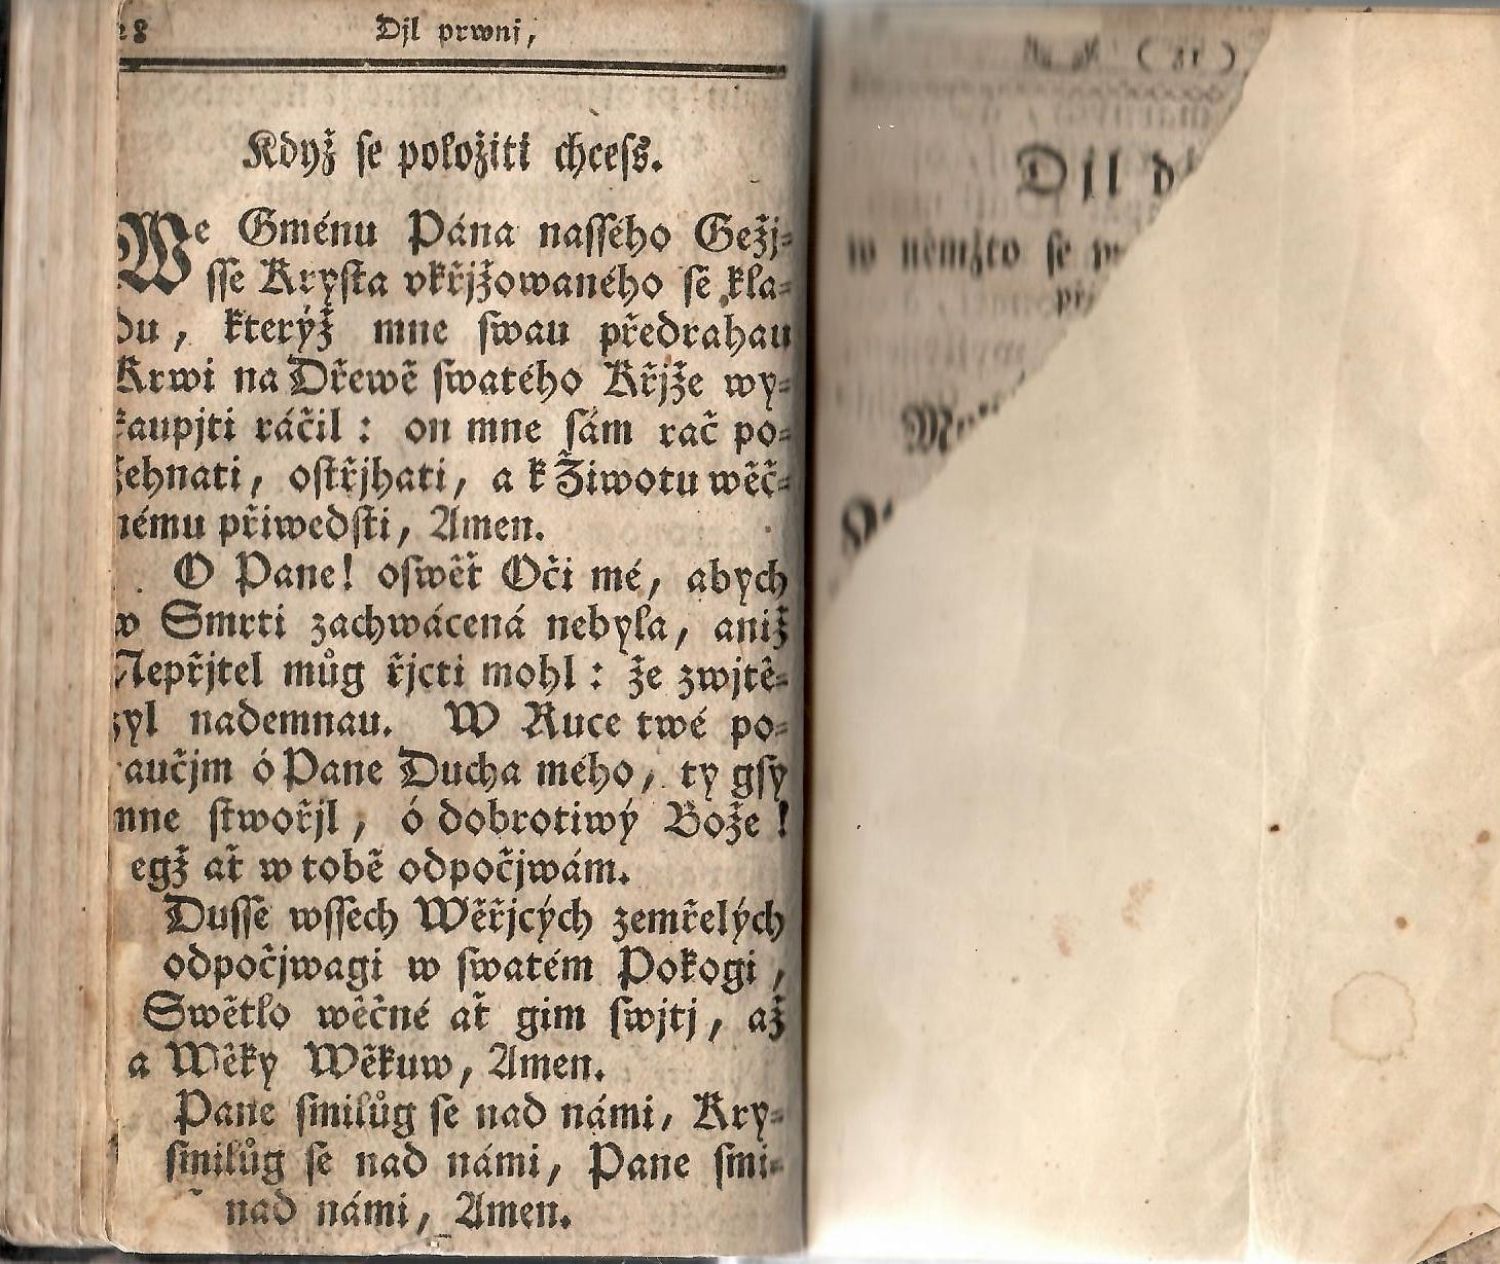 28 Djl prwnj,
Když se položiti chceſs.
We Gménu Pána naſſého Gežj-
ſſe Kryſta vkřjžowaného ſe kla-
du, kterýž mne ſwau předrahau
Krwi na Dřewě ſwatého Křjže wy-
kaupjti ráčil: on mne ſám rač po-
žehnati, oſtřjhati, a k Žiwotu wěč-
nému přiwedſti, Amen.
O Pane! oſwěť Oči mé, abych
w Smrti zachwácená nebyla, aniž
Nepřjtel můg řjcti mohl: že zwjtě-
zyl nademnau. W Ruce twé po-
aučjm ó Pane Ducha mého, ty gſy
mne ſtwořjl, ó dobrotiwý Bože!
egž ať w tobě odpočjwám.
Duſſe wſſech Wěřjcých zemřelých
odpočjwagi w ſwatém Pokogi,
Swětlo wěčné ať gim ſwjtj, až
a Wěky Wěkuw, Amen.
Pane ſmilůg ſe nad námi, Kry-
ſmilůg ſe nad námi, Pane ſmi-
nad námi, Amen.
Djl
w němžto ſe